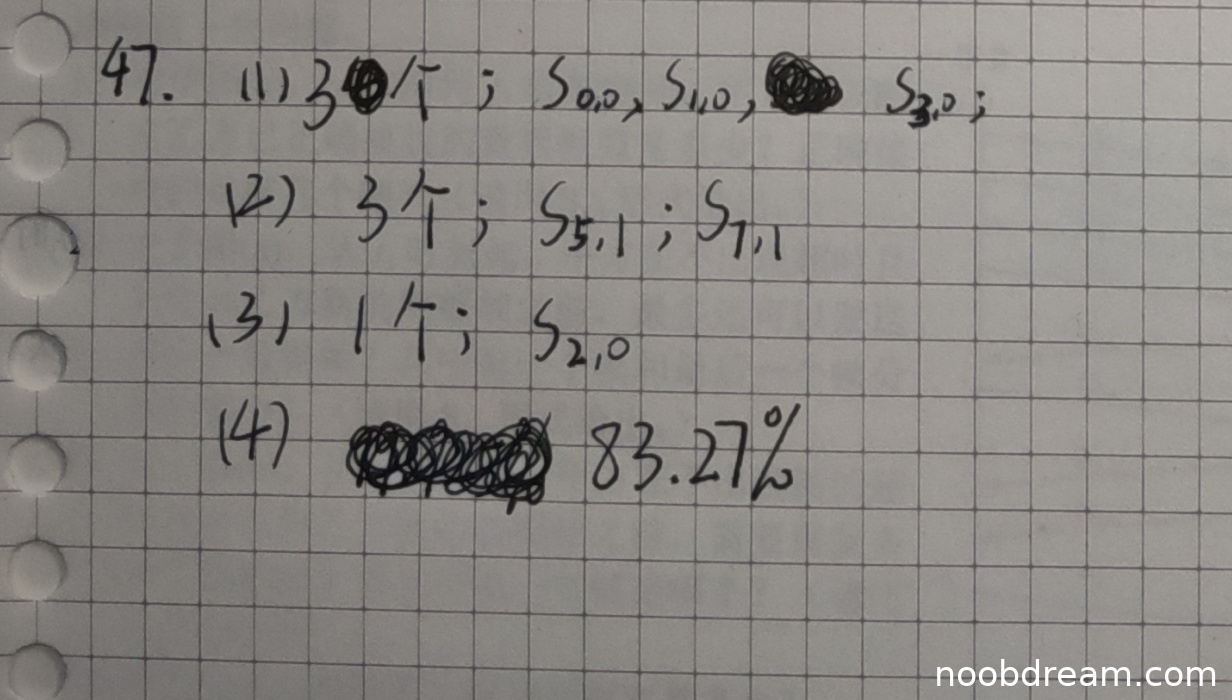 47. (1) 3个; S0,0, S1,0, S3,0;
(2) 3个; S5,1; S7,1
(3) 1个; S2,0
(4) 83.27%
noobdream.com